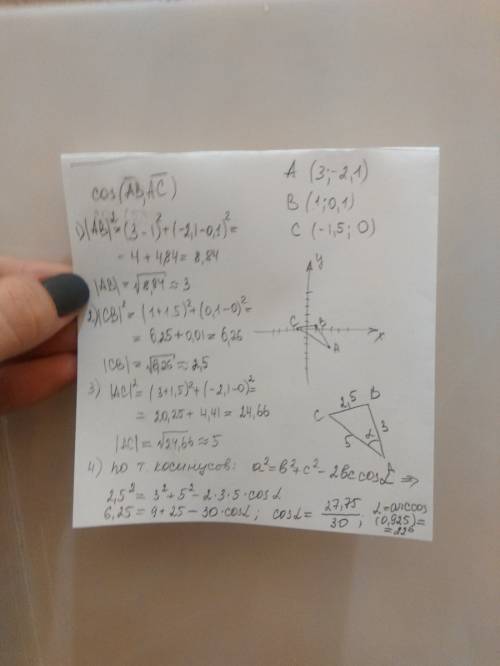 cos(AB, AC)
A (3; -2,1)
B (1; 0,1)
C (-1,5; 0)
1) |AB|² = (3-1)² + (-2,1-0,1)² =
= 4 + 4,84 = 8,84
|AB| = √8,84 ≈ 3
2) |CB|² = (1+1,5)² + (0,1-0)² =
= 6,25 + 0,01 = 6,26
|CB| = √6,26 ≈ 2,5
3) |AC|² = (3+1,5)² + (-2,1-0)² =
= 20,25 + 4,41 = 24,66
|AC| = √24,66 ≈ 5
y
C B
x
A
B
C 2,5
3
5 α
A
4) по т. косинусов: a² = b² + c² - 2bc cosα ⇒
2,5² = 3² + 5² - 2·3·5·cosα
6,25 = 9 + 25 - 30·cosα; cosα = 27,75/30; α = arccos
(0,925) =